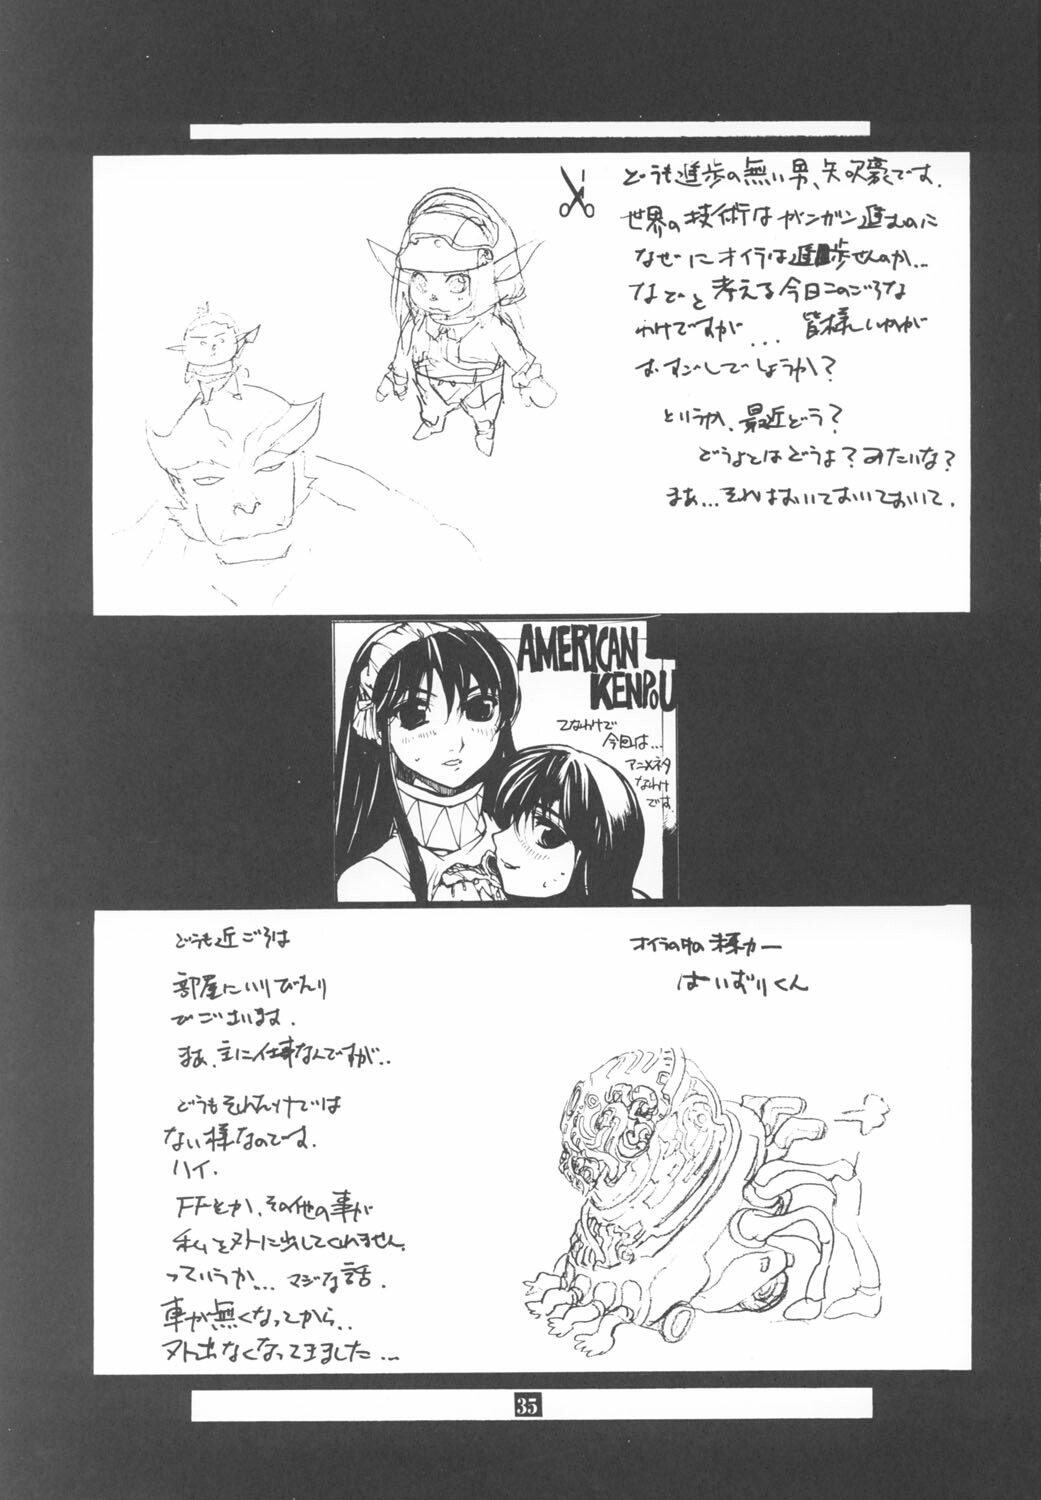 どうも進歩の無い男、矢吹豪です。
世界の技術はガンガン進むのに
なぜにオイラは進歩せんのか…
などと考える今日このごろな
わけですが… 皆様いかが
おすごしでしょうか？
というか、最近どう？
どうよとはどうよ？みたいな？
まぁ…それはおいておいておいて。
AMERICAN
KENPOU
てなわけで
今回は…
アニメネタ
なわけ
です。
どうも近ごろは
部屋にいりびたり
でございます。
まあ、主に仕事なんですが..
どうもそれだけでは
ない様なのです。
ハイ。
FFとか、その他の事が
私を外に出してくれません。
っていうか… マジな話。
車が無くなってから..
外出なくなってきました…
オイラの中の
カー
はいずりくん
35